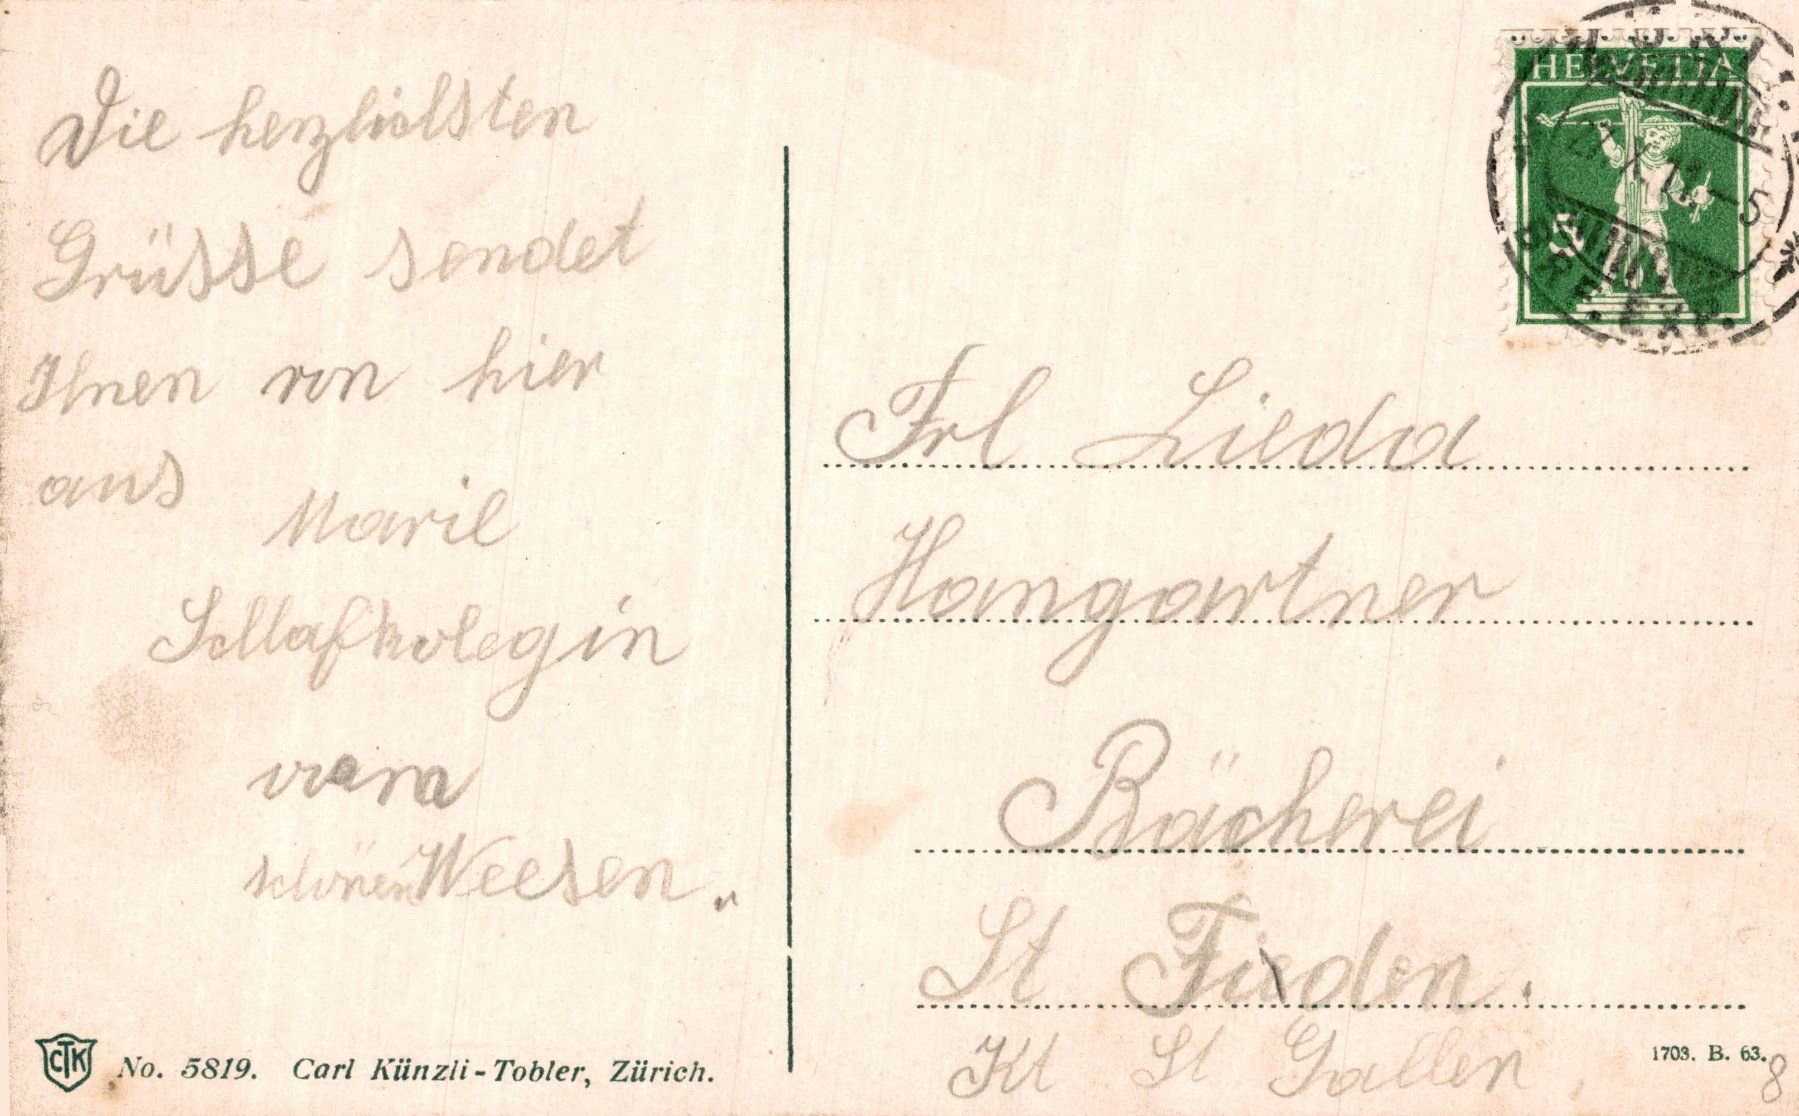 Die herzlichsten
Grüsse sendet
Ihnen von hier
aus
Marie
Schlafkolegin
vom
schönen Weesen.
Frl Lieda
Hangartner
Bächerei
St Fieden.
Kt St Gallen
HELVETIA
5
BRF. EXP.
CTK
No. 5819. Carl Künzli-Tobler, Zürich.
1703. B. 63.
8